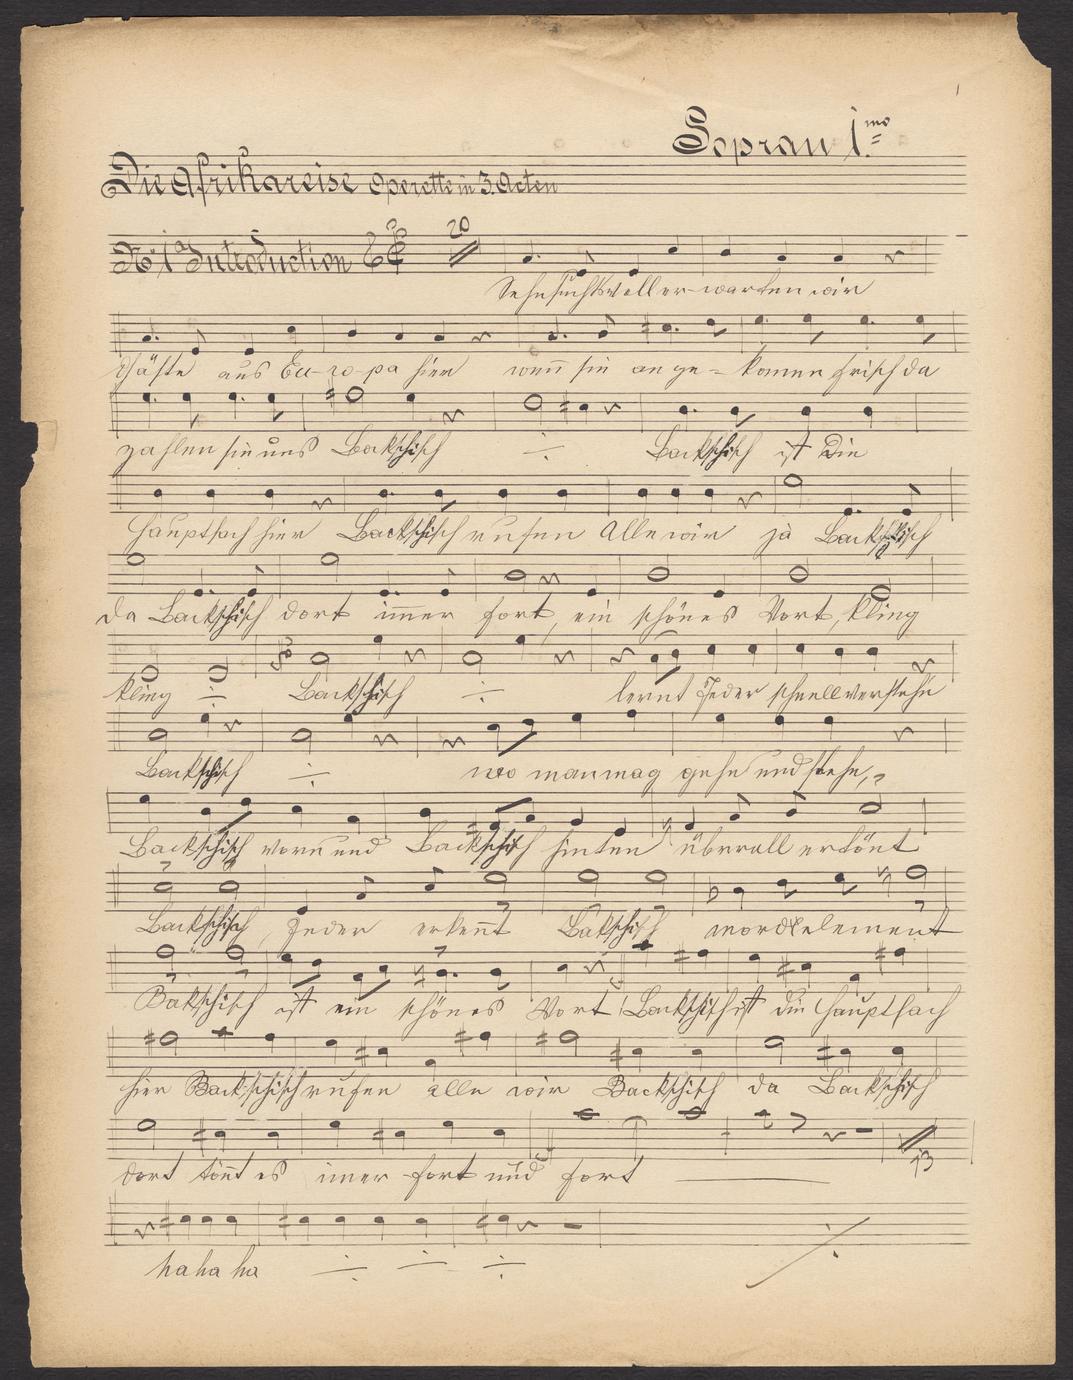 Sopran 1.mo
Die Afrikareise Operette in 3. Acten
No 1a Introduction 20
Sehnsuchtsvoll er-warten wir
Gäste aus Eu-ro-pa hier wenn sie an ge-=komen frisch da
zahlen sie uns Backschisch ÷ Backschisch ist Die
Hauptsach hier Backschisch rufen Alle wir ja Backschisch
da Backschisch dort im̄er fort, ein schönes Wort, kling
kling ÷ Backschisch ÷ lernt Jeder schnell verstehn
Backschisch ÷ wo man mag gehn und stehn,
Backschisch vorn und Backschisch hinten überall ertönt
Backschisch, Jeder erken̄t Bakschisch mordelement
Bakschisch ist ein schönes Wort! Backschisch ist die Hauptsach
hier Backschisch rufen alle wir Backschisch da Backschisch
dort tön̄t es im̄er fort und fort
13
ha ha ha ÷ ÷ ÷